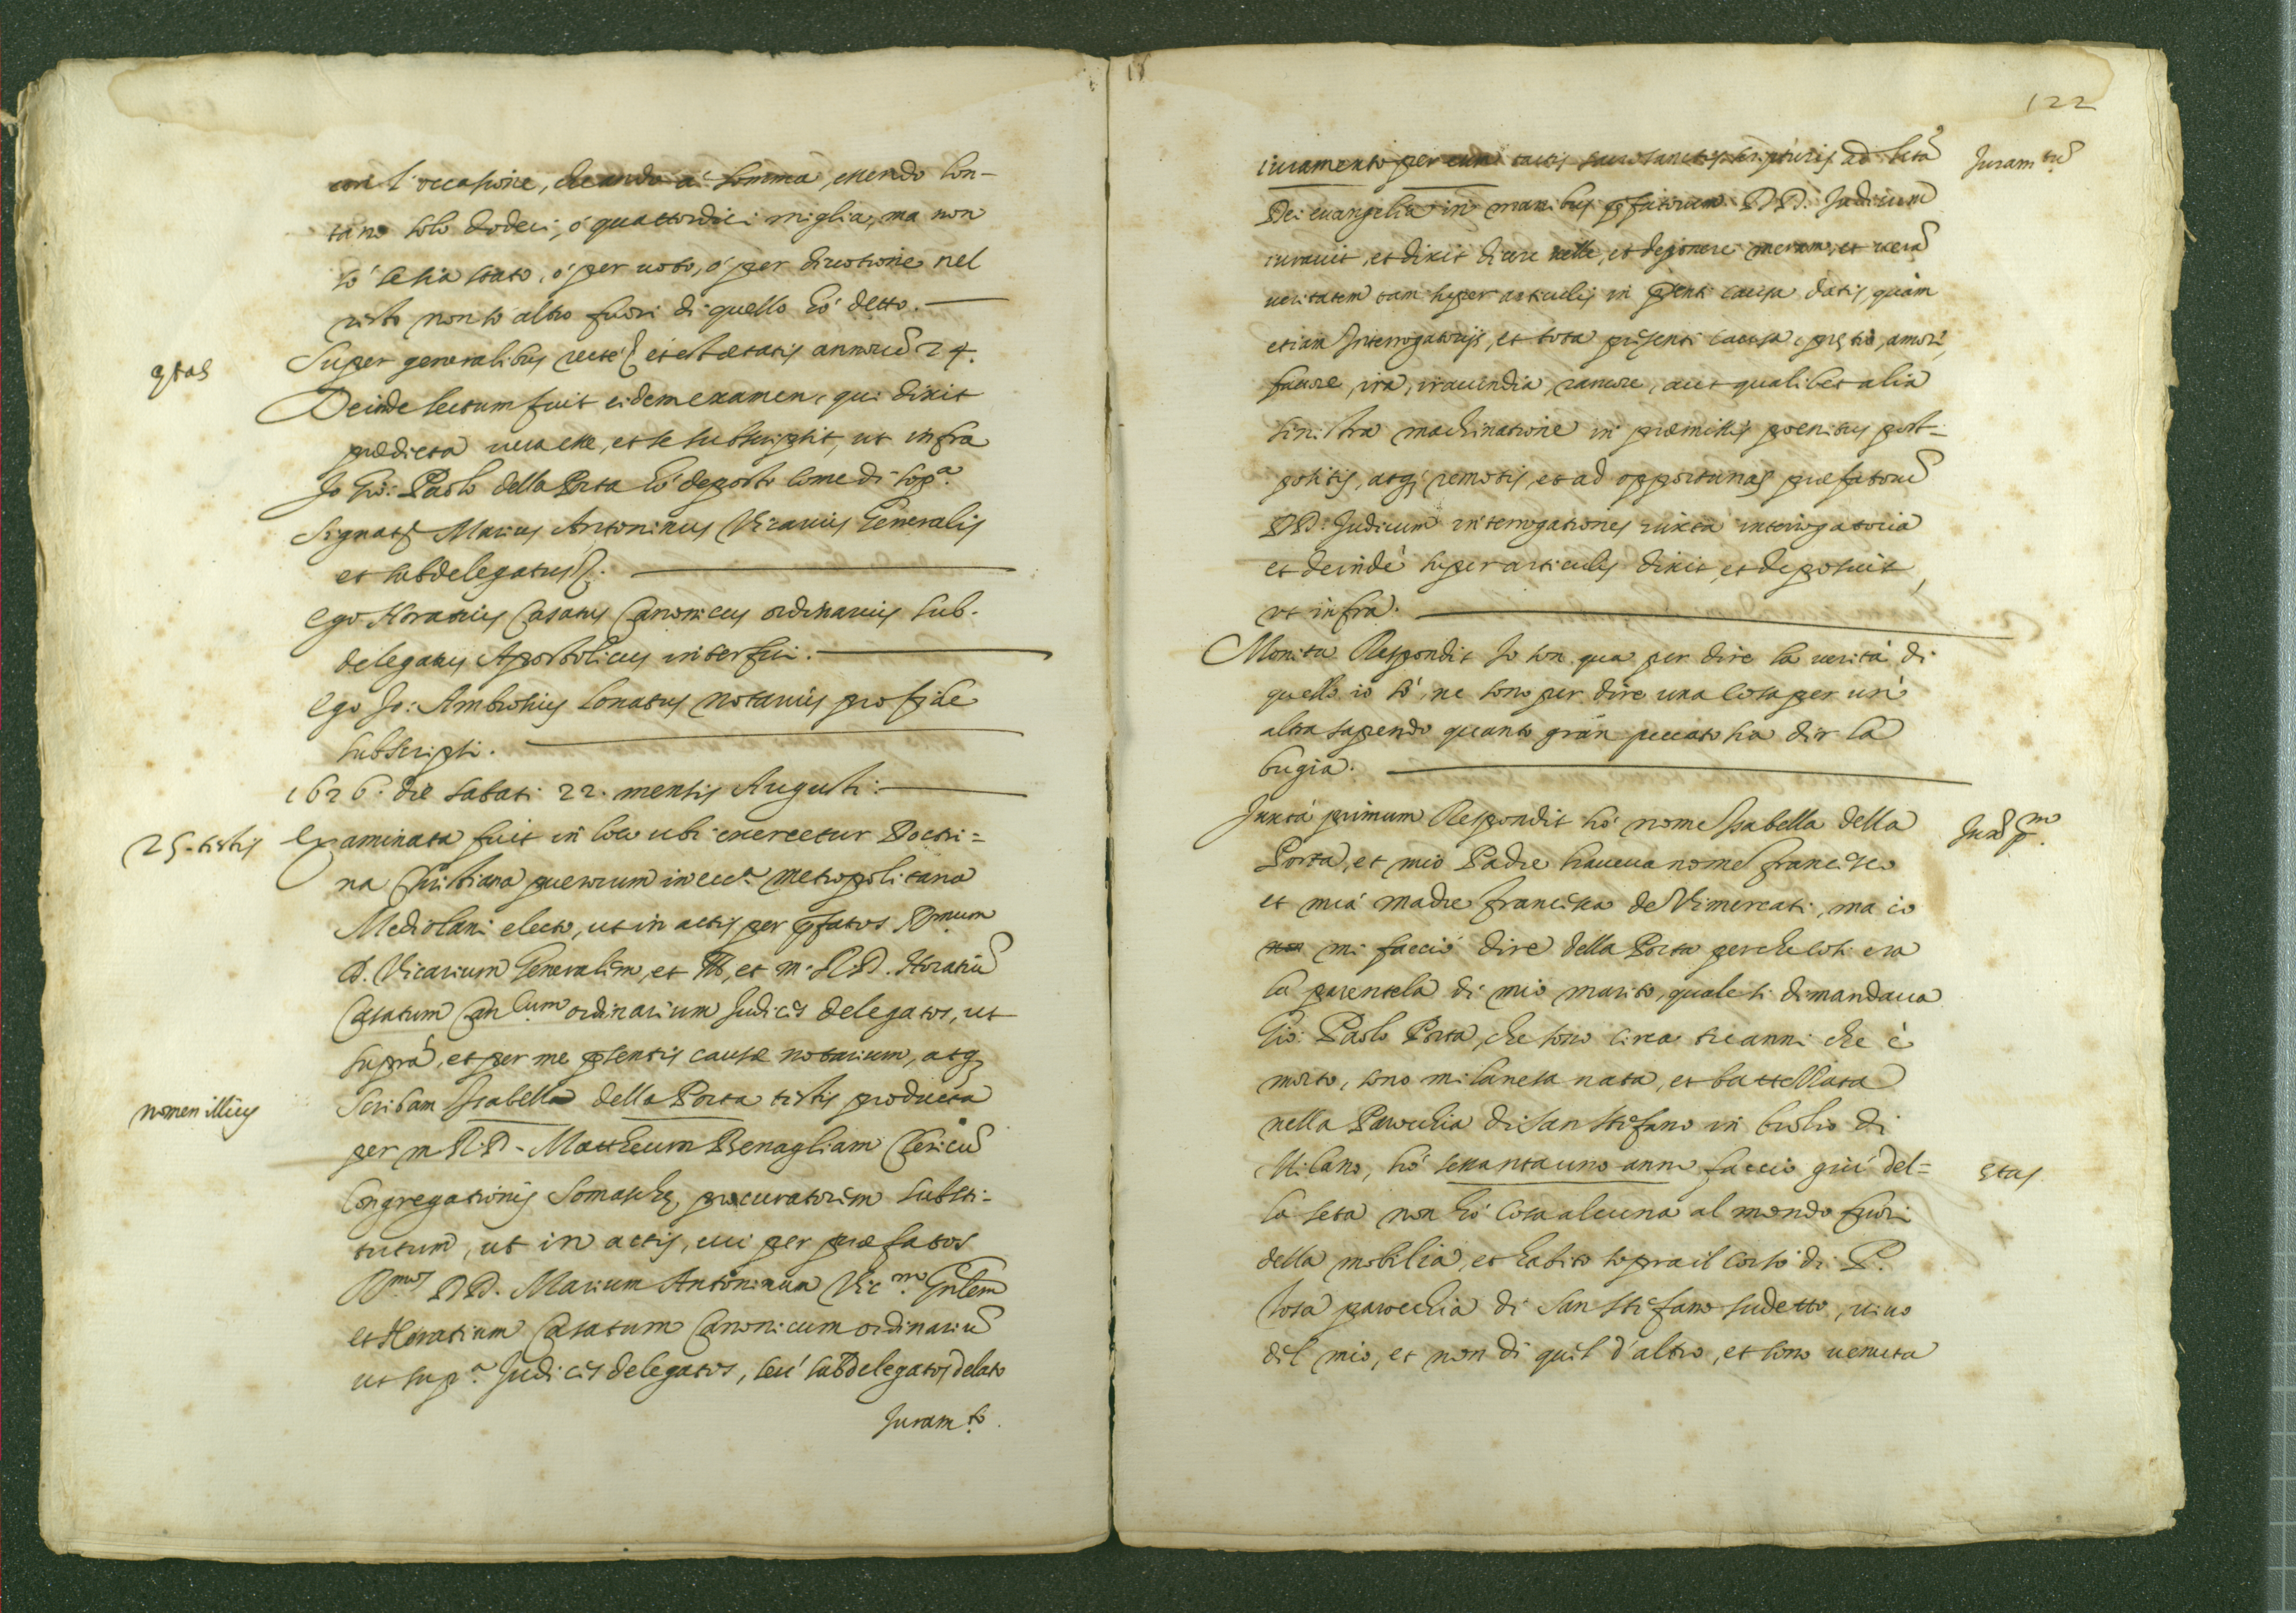 con l'occasione, che andò à Somma, essendo lon-
tano solo dodeci, ò quattordici miglia, ma non
sò se sia stato, ò per uoto, ò per diuotione nel
resto non sò altro fuori di quello hò detto.
ętas
Super generalibus recte et est ætatis annorũ 24.
Deinde lectum fuit eidem examen, qui dixit
prædicta uera esse, et se subscripsit, ut infra
Io Gio: Paolo della Porta hò deposto come di sop.ª
Signat Marius Antoninus Vicarius Generalis
et subdelegatus.
Ego Horatius Casatus Canonicus ordinarius sub-
delegatus Apostolicus interfui.
Ego Jo: Ambrosius Lonatus notarius pro fide
subscripsi.
1626. die sabati 22. mensis Augusti.
25. testis
Examinata fuit in loco ubi exercetur Doctri=
na Christiana puerorum in ecc.ª metropolitana
Mediolani electo, ut in actis per p̃fatos R.mum
D. Vicarium Generalem, et Ill, et m. R. D. Horatiũ
Casatum Can.cum ordinarium Judices delegatos, ut
suprà, et per me p̃sentis causæ notarium, atq;
nomen illius
Scribam Isabella della Porta testis producta
per m. R. D. Mattheum Benagliam Clericũ
Congregationis Somaschę, procuratorem substi-
tutum, ut in actis, cui per præfatos
R.mos DD. Marium Antoninum Vic.m Gñlem
et Horatium Casatum Canonicum ordinariũ
ut sup.ª Judices delegatos, seu subdelegatos delato
Juram.to
122
iuramento per eum tactis sacrosanctis scripturis ad sctã
Juram.tũ
Dei euangelia in manibus p̃fatorum DD. Judicum
iurauit, et dixit dicere uelle, et deponere meram, et uerã
ueritatem tam super articulis in p̃senti causa datis, quàm
etiam Interrogatorijs, et tota presenti causa, prętio, amore,
fauore, ira, iracundia, rancore, aut qualibet alia
sinistra machinatione in præmissis poenitus post-
positis, atq; remotis, et ad opportunas præfatorũ
DD. Judicum interrogationes iuxta interrogatoria
et deindè super articulis dixit, et deposuit
ut infra.
Monita Respondit Io son qua per dire la uerità di
quello io sò, ne sono per dire una cosa per un'
altra sapendo quanto gran peccato sia dir la
bugia.
Juxtà primum Respondit hò nome Isabella della
Jux p.m
Porta, et mio Padre haueua nome francesco
et mia madre francisca de Vimercati, ma io
non mi faccio dire della Porta perche così era
la parentela di mio marito, quale si dimandaua
Gio: Paolo Porta, che sono circa tre anni che è
morto, sono milanesa nata, et battezata
nella Parochia di San Stefano in brolio di
Milano, hò sessantauno anni faccio giù del=
Etas
la seta non hò cosa alcuna al mondo fuori
della mobilia, et habito sopra il corso di P.
Tosa parochia di San Stefano sudetto, uiuo
del mio, et non di quel d'altro, et sono uenuta